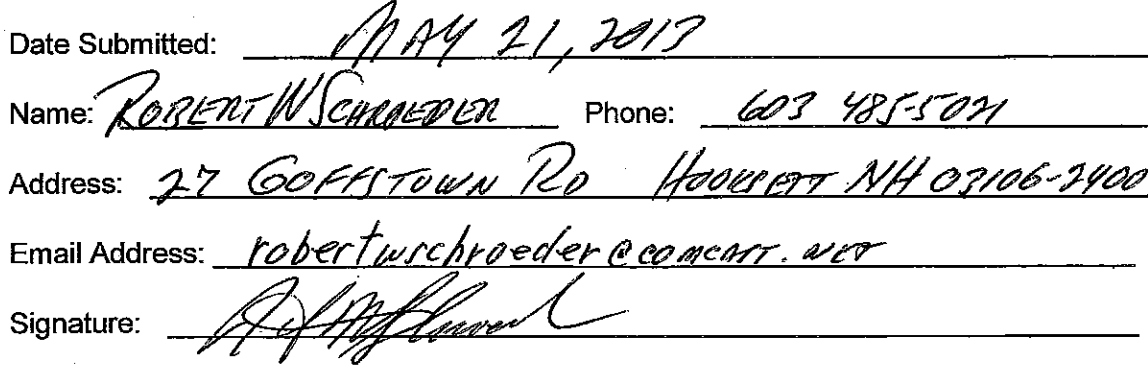 Date Submitted: MAY 21, 2013
Name: ROBERT W SCHROEDER Phone: 603 485-5021
Address: 27 GOFFSTOWN RD HOOKSETT NH 03106-2400
Email Address: robertwschroeder@comcast.net
Signature: